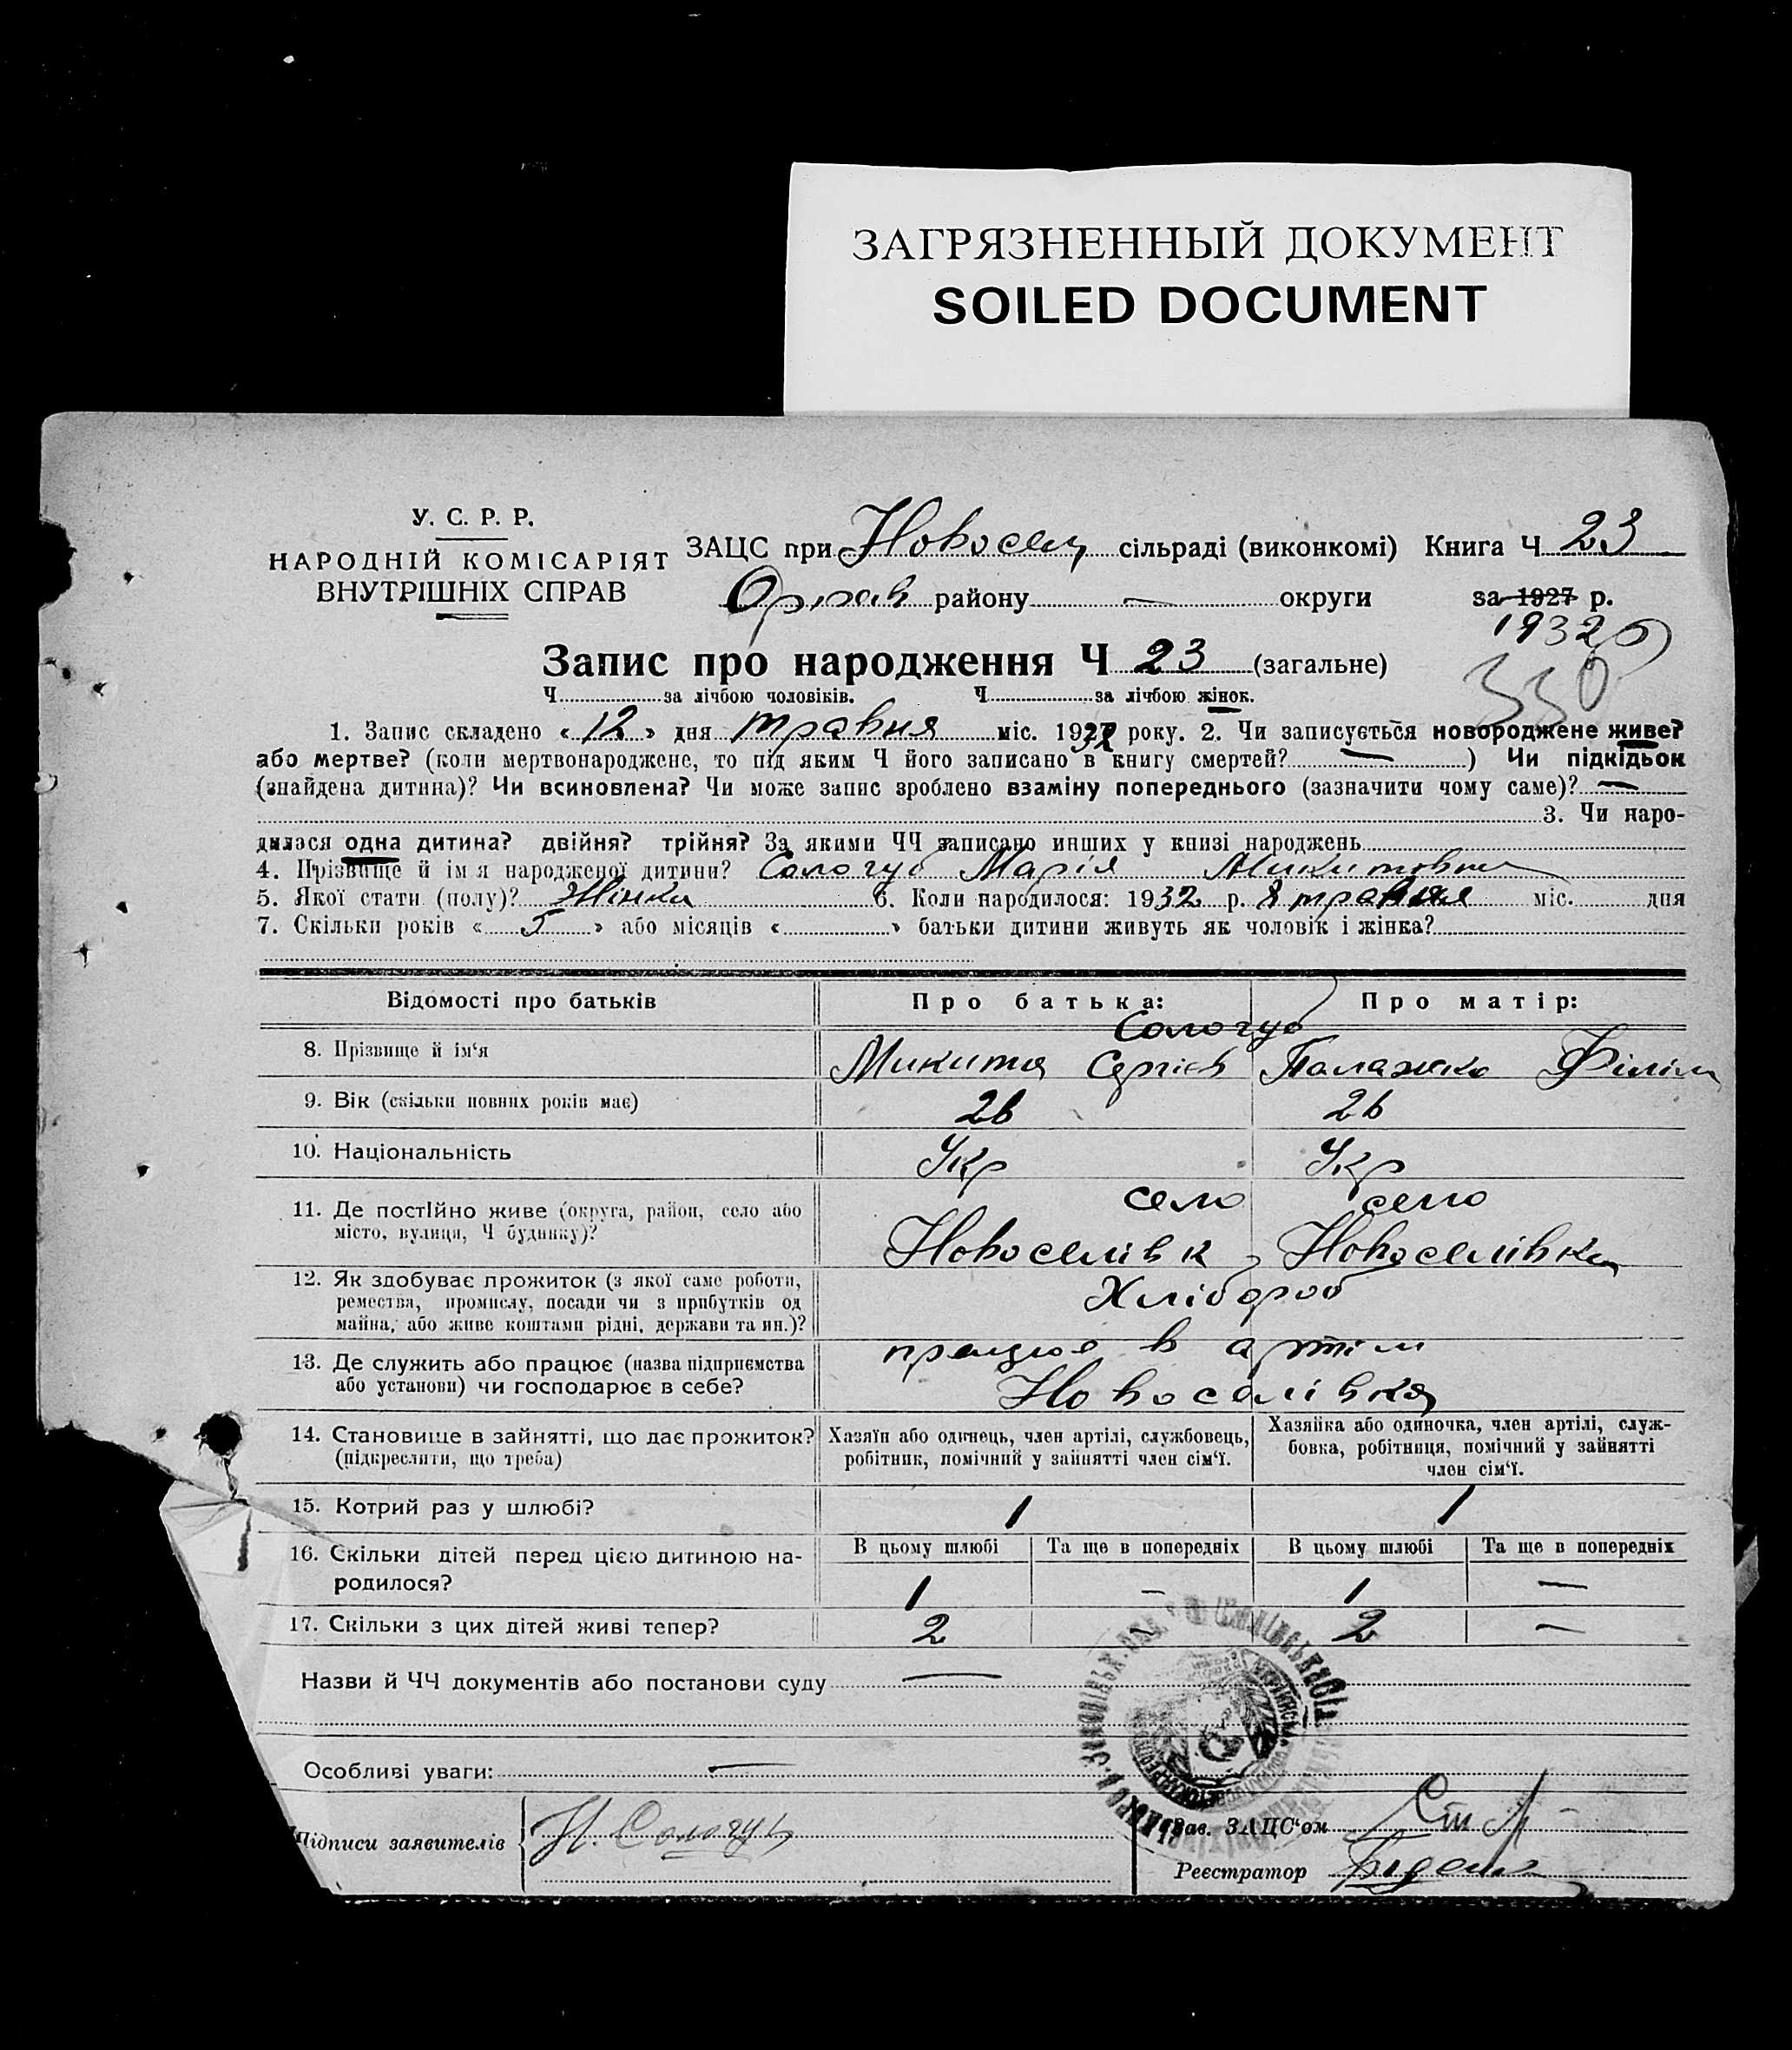 ЗАГРЯЗНЕННЫЙ ДОКУМЕНТ
SOILED DOCUMENT
У. С. Р. Р.
НАРОДНІЙ КОМІСАРІЯТ
ВНУТРІШНІХ СПРАВ
ЗАЦС при Новосел сільраді (виконкомі) Книга Ч 23
району — округи за 1927 р.
1932
Запис про народження Ч 23 (загальне)
330
Ч за лічбою чоловіків. Ч за лічбою жінок.
1. Запис складено « 12 » дня травня міс. 1932 року. 2. Чи записується новороджене живе?
або мертве? (коли мертвонароджене, то під яким Ч його записано в книгу смертей? — ) Чи підкідьок
(знайдена дитина)? Чи всиновлена? Чи може запис зроблено взаміну попереднього (зазначити чому саме)? —
3. Чи наро-
дилася одна дитина? двійня? трійня? За якими ЧЧ записано инших у книзі народжень
4. Прізвище й ім я народженої дитини? Сологуб Марія Микитовна
5. Якої стати (полу)? Жінка 6. Коли народилося: 1932 р. 8 травня міс. дня
7. Скільки років « 5 » або місяців « » батьки дитини живуть як чоловік і жінка?
Відомості про батьків Про батька: Про матір:
Сологуб
8. Прізвище й ім‘я Микита Сергієв Палажка Філіп
9. Вік (скільки повних років має) 26 26
10. Національність Укр Укр
село село
11. Де постійно живе (округа, район, село або
місто, вулиця, Ч будинку)? Новоселівк Новоселівка
12. Як здобуває прожиток (з якої саме роботи,
ремества, промислу, посади чи з прибутків од
майна, або живе коштами рідні, держави та ин.)? Хлібороб
13. Де служить або працює (назва підприємства
або установи) чи господарює в себе? працює в артіли
Новоселівка
14. Становище в зайнятті, що дає прожиток?
(підкреслити, що треба)
Хазяїн або одинець, член артілі, службовець,
робітник, помічний у зайнятті член сім‘ї.
Хазяйка або одиночка, член артілі, служ-
бовка, робітниця, помічний у зайнятті
член сім‘ї.
15. Котрий раз у шлюбі? 1 1
16. Скільки дітей перед цією дитиною на-
родилося?
В цьому шлюбі Та ще в попередніх В цьому шлюбі Та ще в попередніх
1 — 1 —
17. Скільки з цих дітей живі тепер? 2 — 2 —
Назви й ЧЧ документів або постанови суду —
Особливі уваги: —
Підписи заявителів Н. Сологуб
Зав. ЗАЦС‘ом
Реєстратор